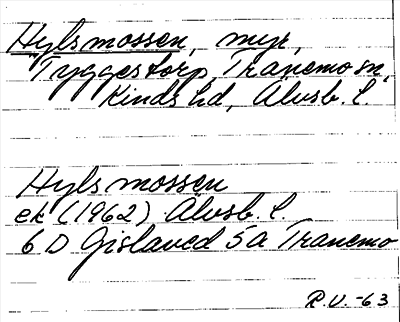 Hylsmossen, myr,
Tyggestorp, Tranemo sn,
Kinds hd, Älvsb. l.
Hylsmossen
ek (1962) Älvsb. l.
6 D Gislaved 5a Tranemo
R.V. -63